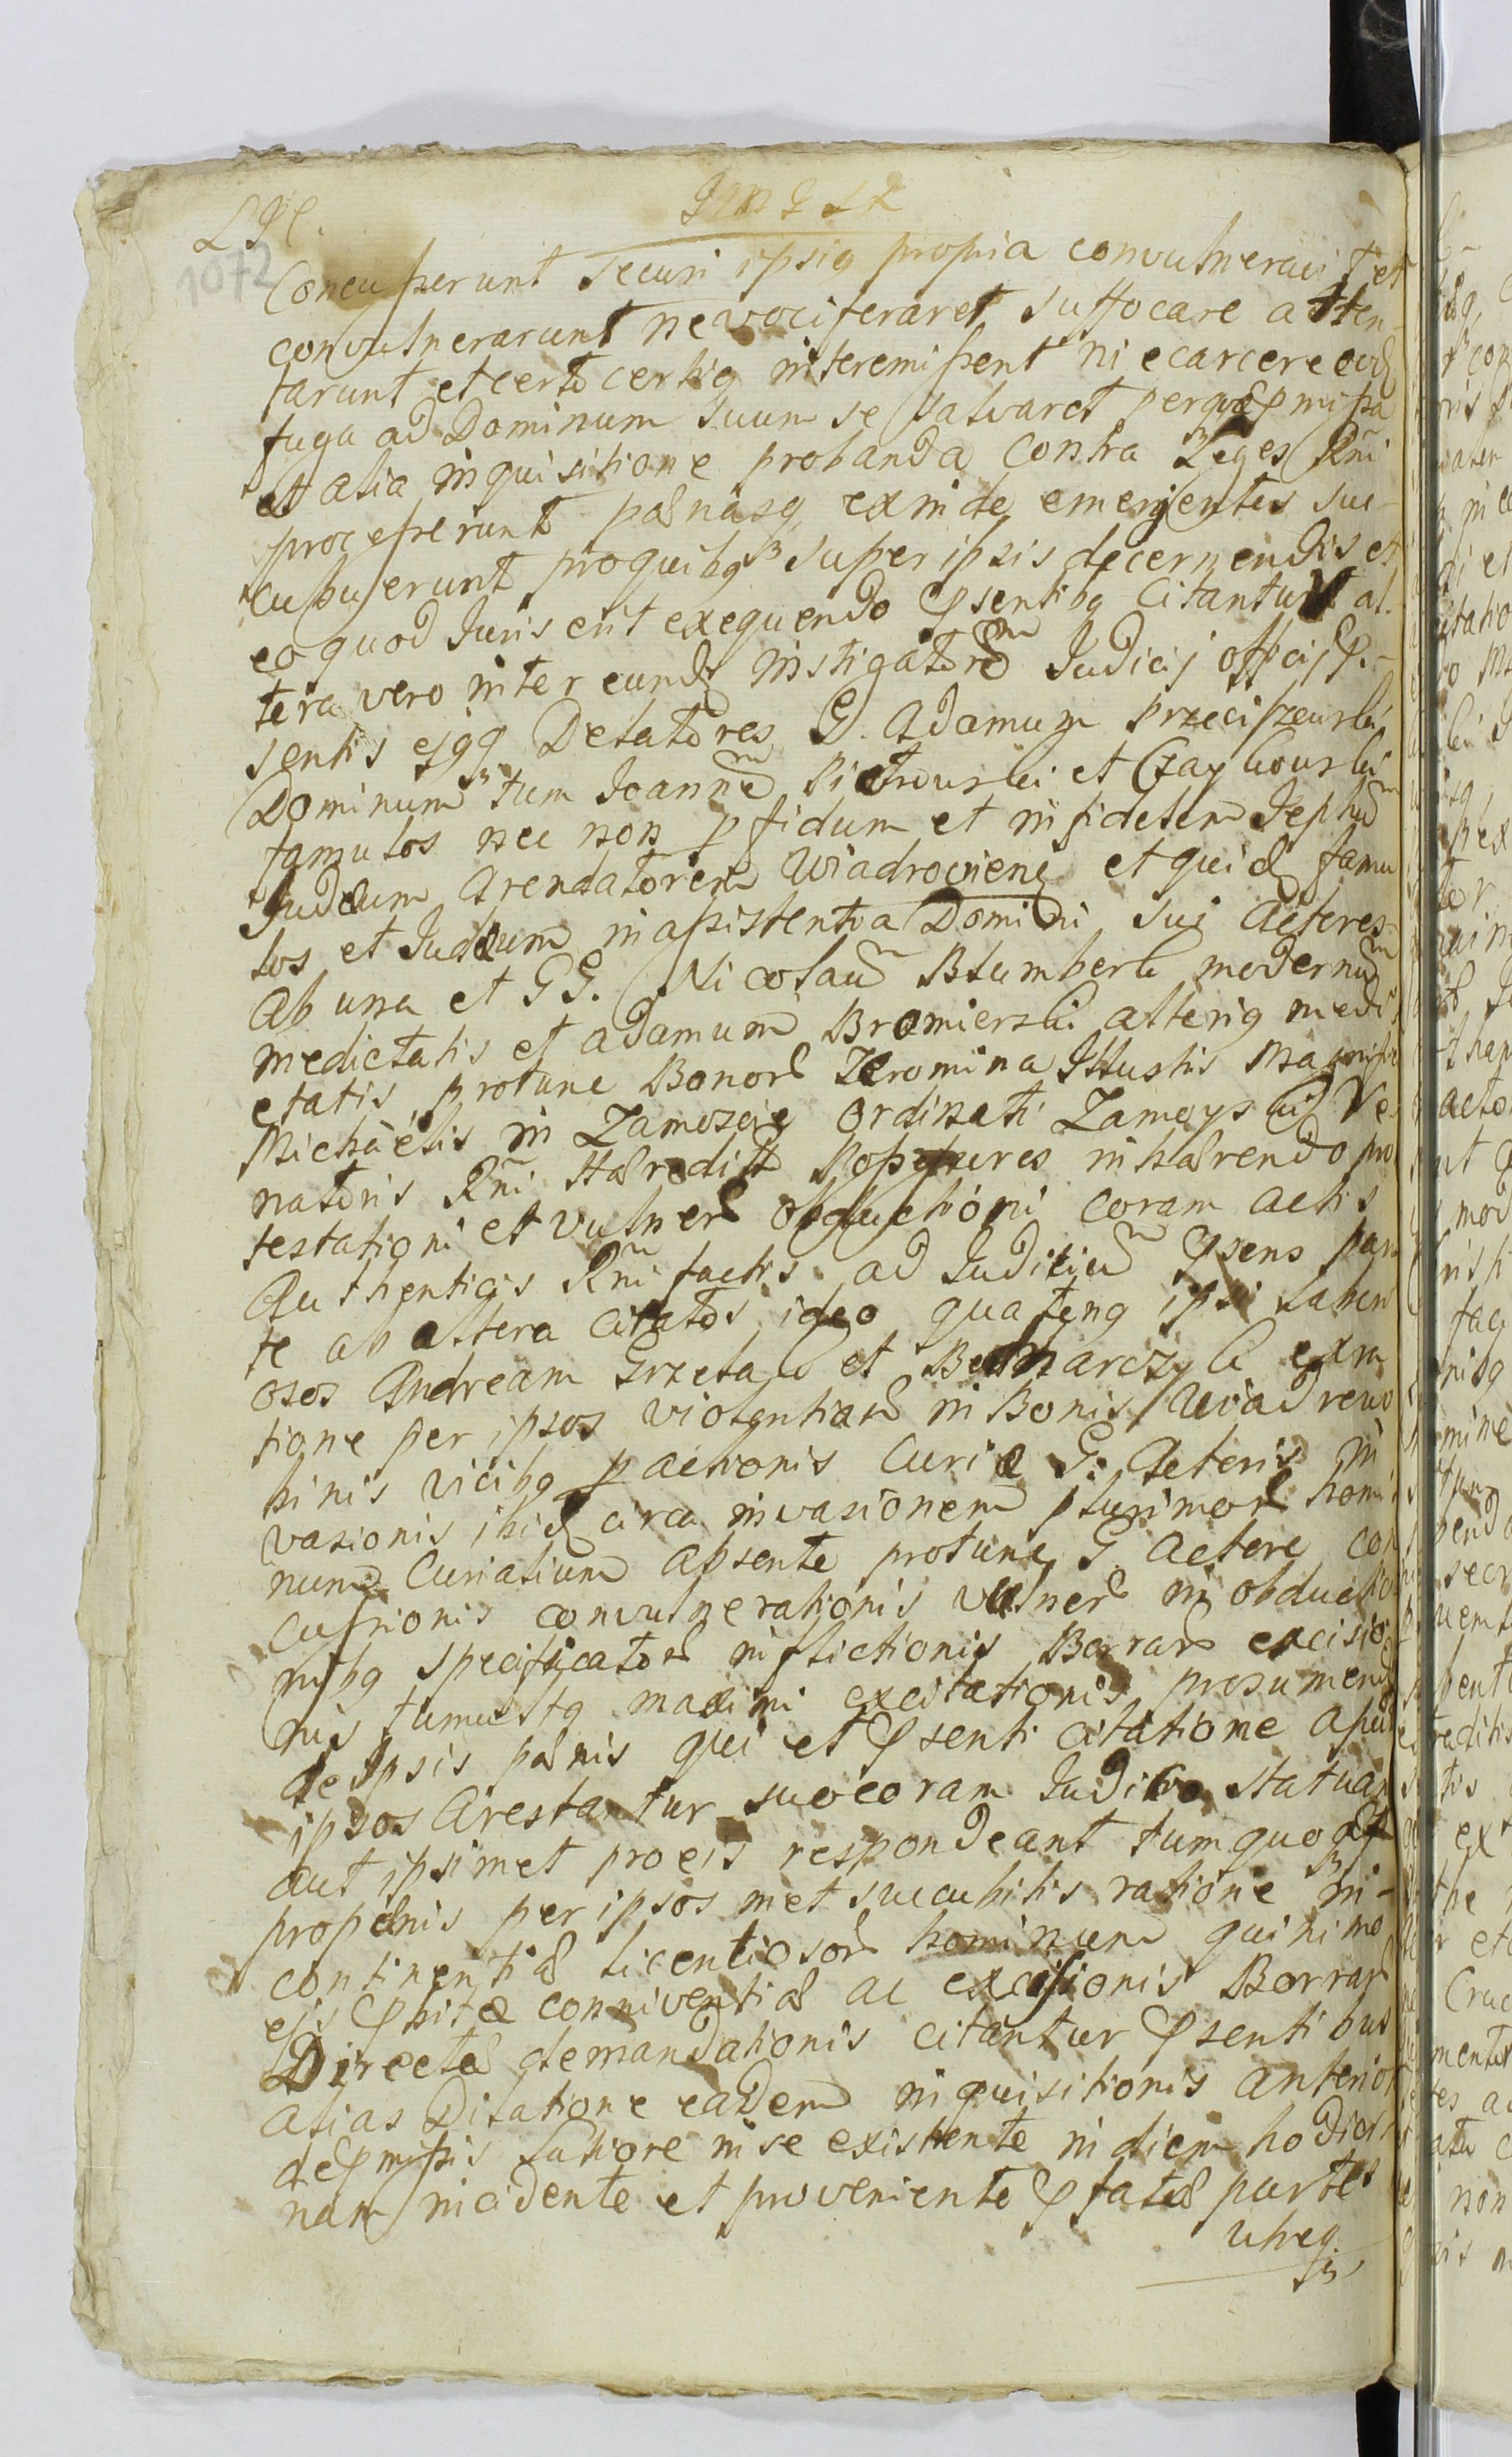 1072
Concusserunt securi ipsiq propria convulneravit et
convulnerarunt ne vociferaret suffocare atten-
tarunt et certo certiq interemissent ni e carcere
fuga ad Dominum suum se salvaret per quæ pmissa
et alia inquisitione probanda contra Leges Rñi
processerunt pænasq exinde emergentes suc-
cubuerunt pro quibq super ipsis decernendis et
eo quod Juris erit exequendo psentibq Citantur al-
tera vero inter eund Instigatorem Judicij officij p-
sentis ejqq Delatores G. Adamum Przeciszewski
Dominum tum Joannem Piotrowski et Czaykowski
famulos nec non pfidum et infidelem
Judæum Arendatorem Wiadroviens et quid famu
los et Judæum in assistentia Domini sui Actores
ab una et GG. Nicolaum Blumberk modernum
medietatis et Adamum Bromierski alteriq medi
etatis protunc Bonor Zeromina Illustris Magnifici
Michaëlis in Zamoscie Ordinati Zamoyski Ve
natoris Rñi Hæredit Possessores inhærendo pro
testationi et vulner obductioni coram Actis
Authenticis Rñi factis ad Judicium psens par
te ab altera citatos ideo quatenq ipsi Labori
osos Andream Grzelak et Bednarczyk ex ra
tione per ipsos violentiar in Bonis Wiadrowo
binis vicibq pactionis Curiæ G. Actoris in
vasionis ibid circa invasionem plurimor homi
num Curialium absente protunc G. Actore con
cussionis convulnerationis vulner in obductio
nibq specificator inflictionis Barrar excisio
nis tumultq maximi excitationis prosumend
de ipsis pænis qui et psenti citatione apud
ipsos Arestantur suo coram Judicio statuan
aut ipsimet pro eis respondeant tum quoq et
pro pænis per ipsosmet succubitis ratione in-
continentiæ licentiosor hominum quinimo
ejs phitæ conniventiæ ac excisionis Barrar
Directæ demandationis citantur psentibus
alias Dilatione eadem inquisitionis anterior
de pmissis Latiore in se existente in diem hodier
nam incidente et proveniente pfatæ partes
utræq